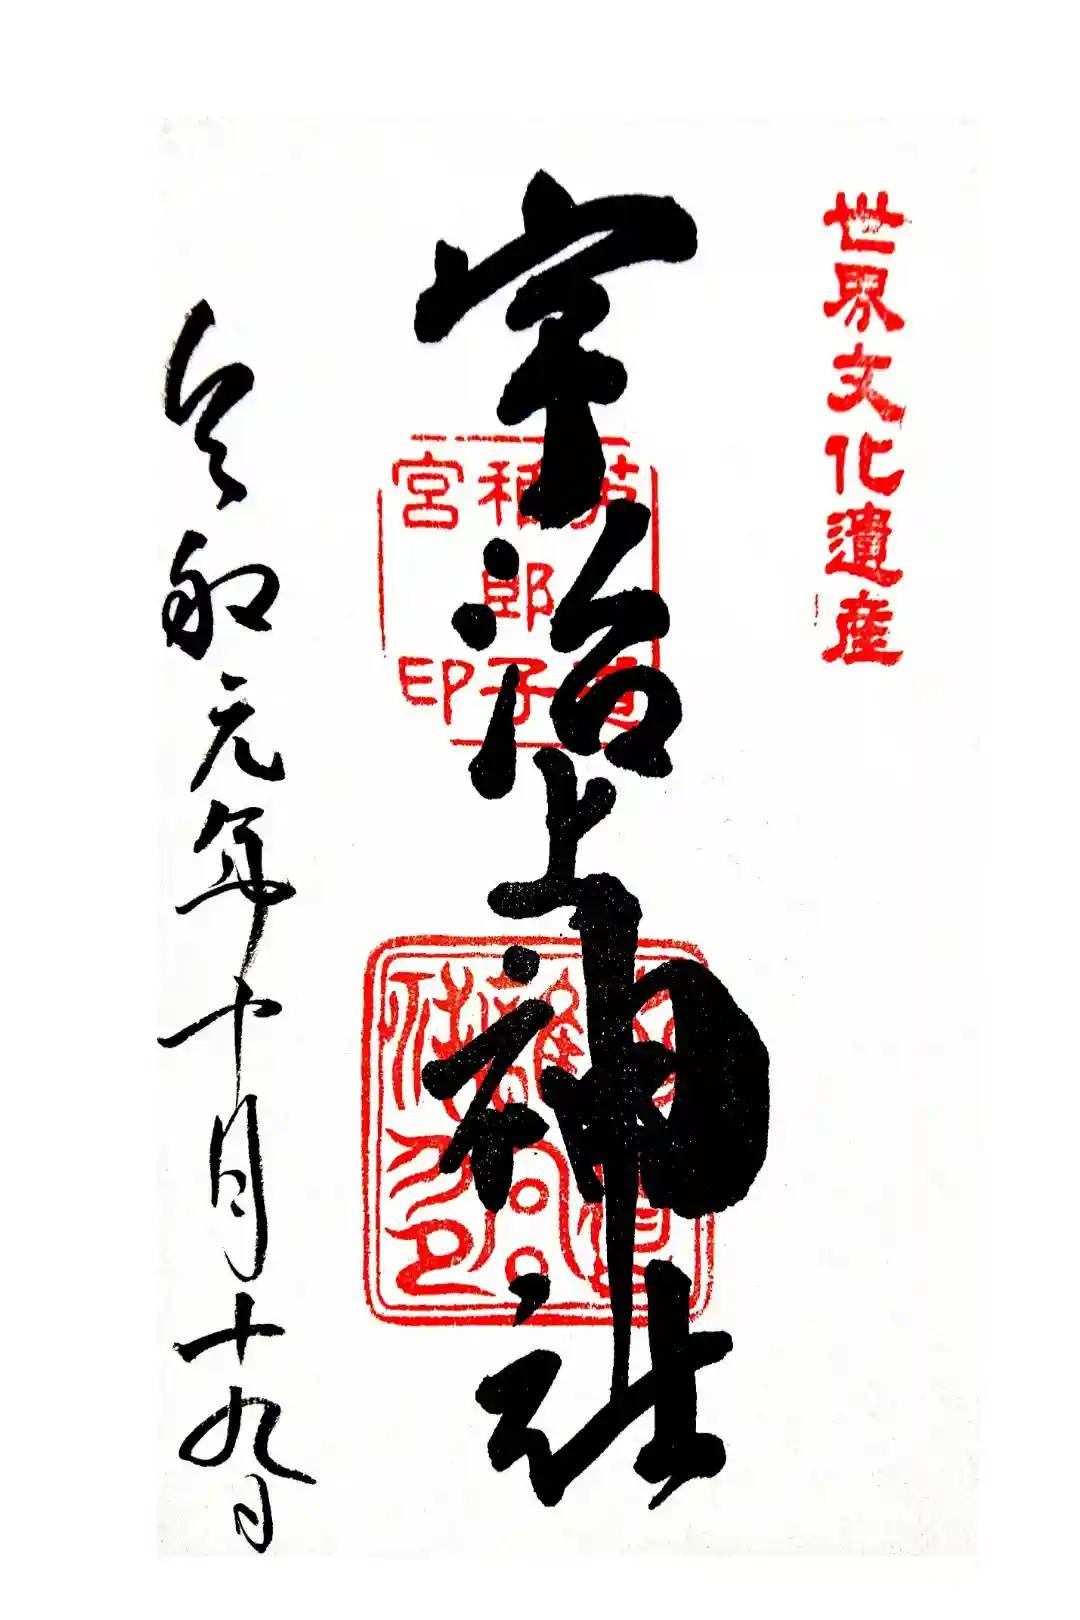 世界文化遺産
宇治上神社
稚郎子
宮印
令和元年十月十九日